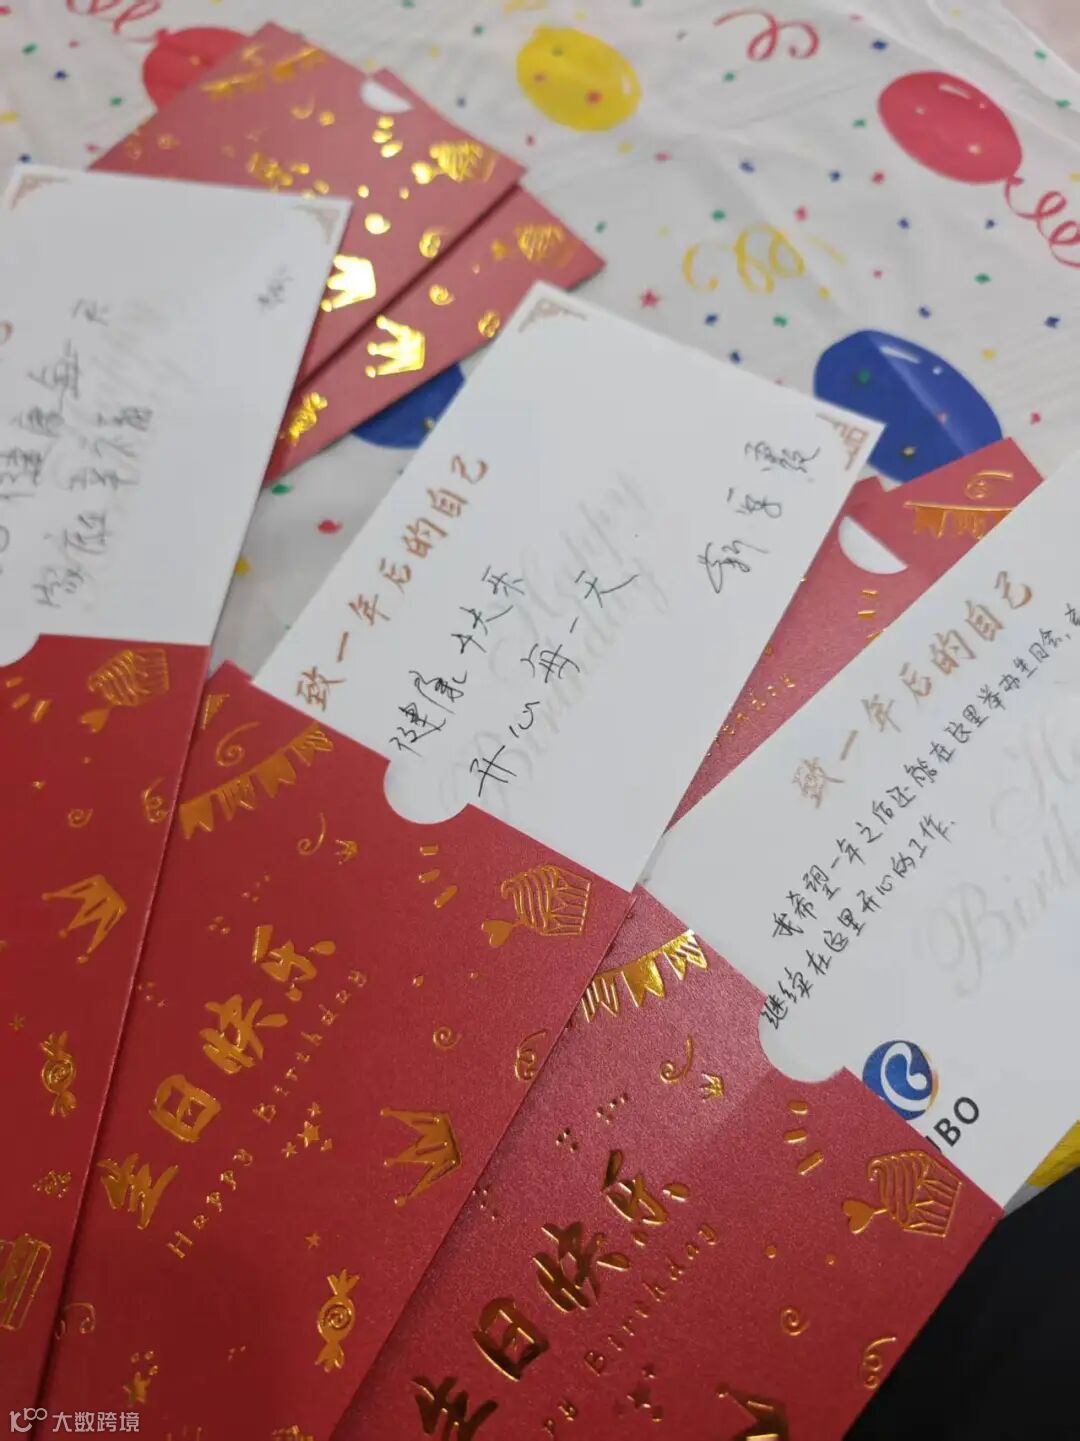 健康每一天
家庭幸福
致一年后的自己
Happy
Birthday
健康快乐
开心每一天
致一年后的自己
我希望一年之后还能在这里举办生日会,
继续在这里开心的工作.
IBO
生日快乐
Happy Birthday
生日快乐
Happy Birthday
大数跨境